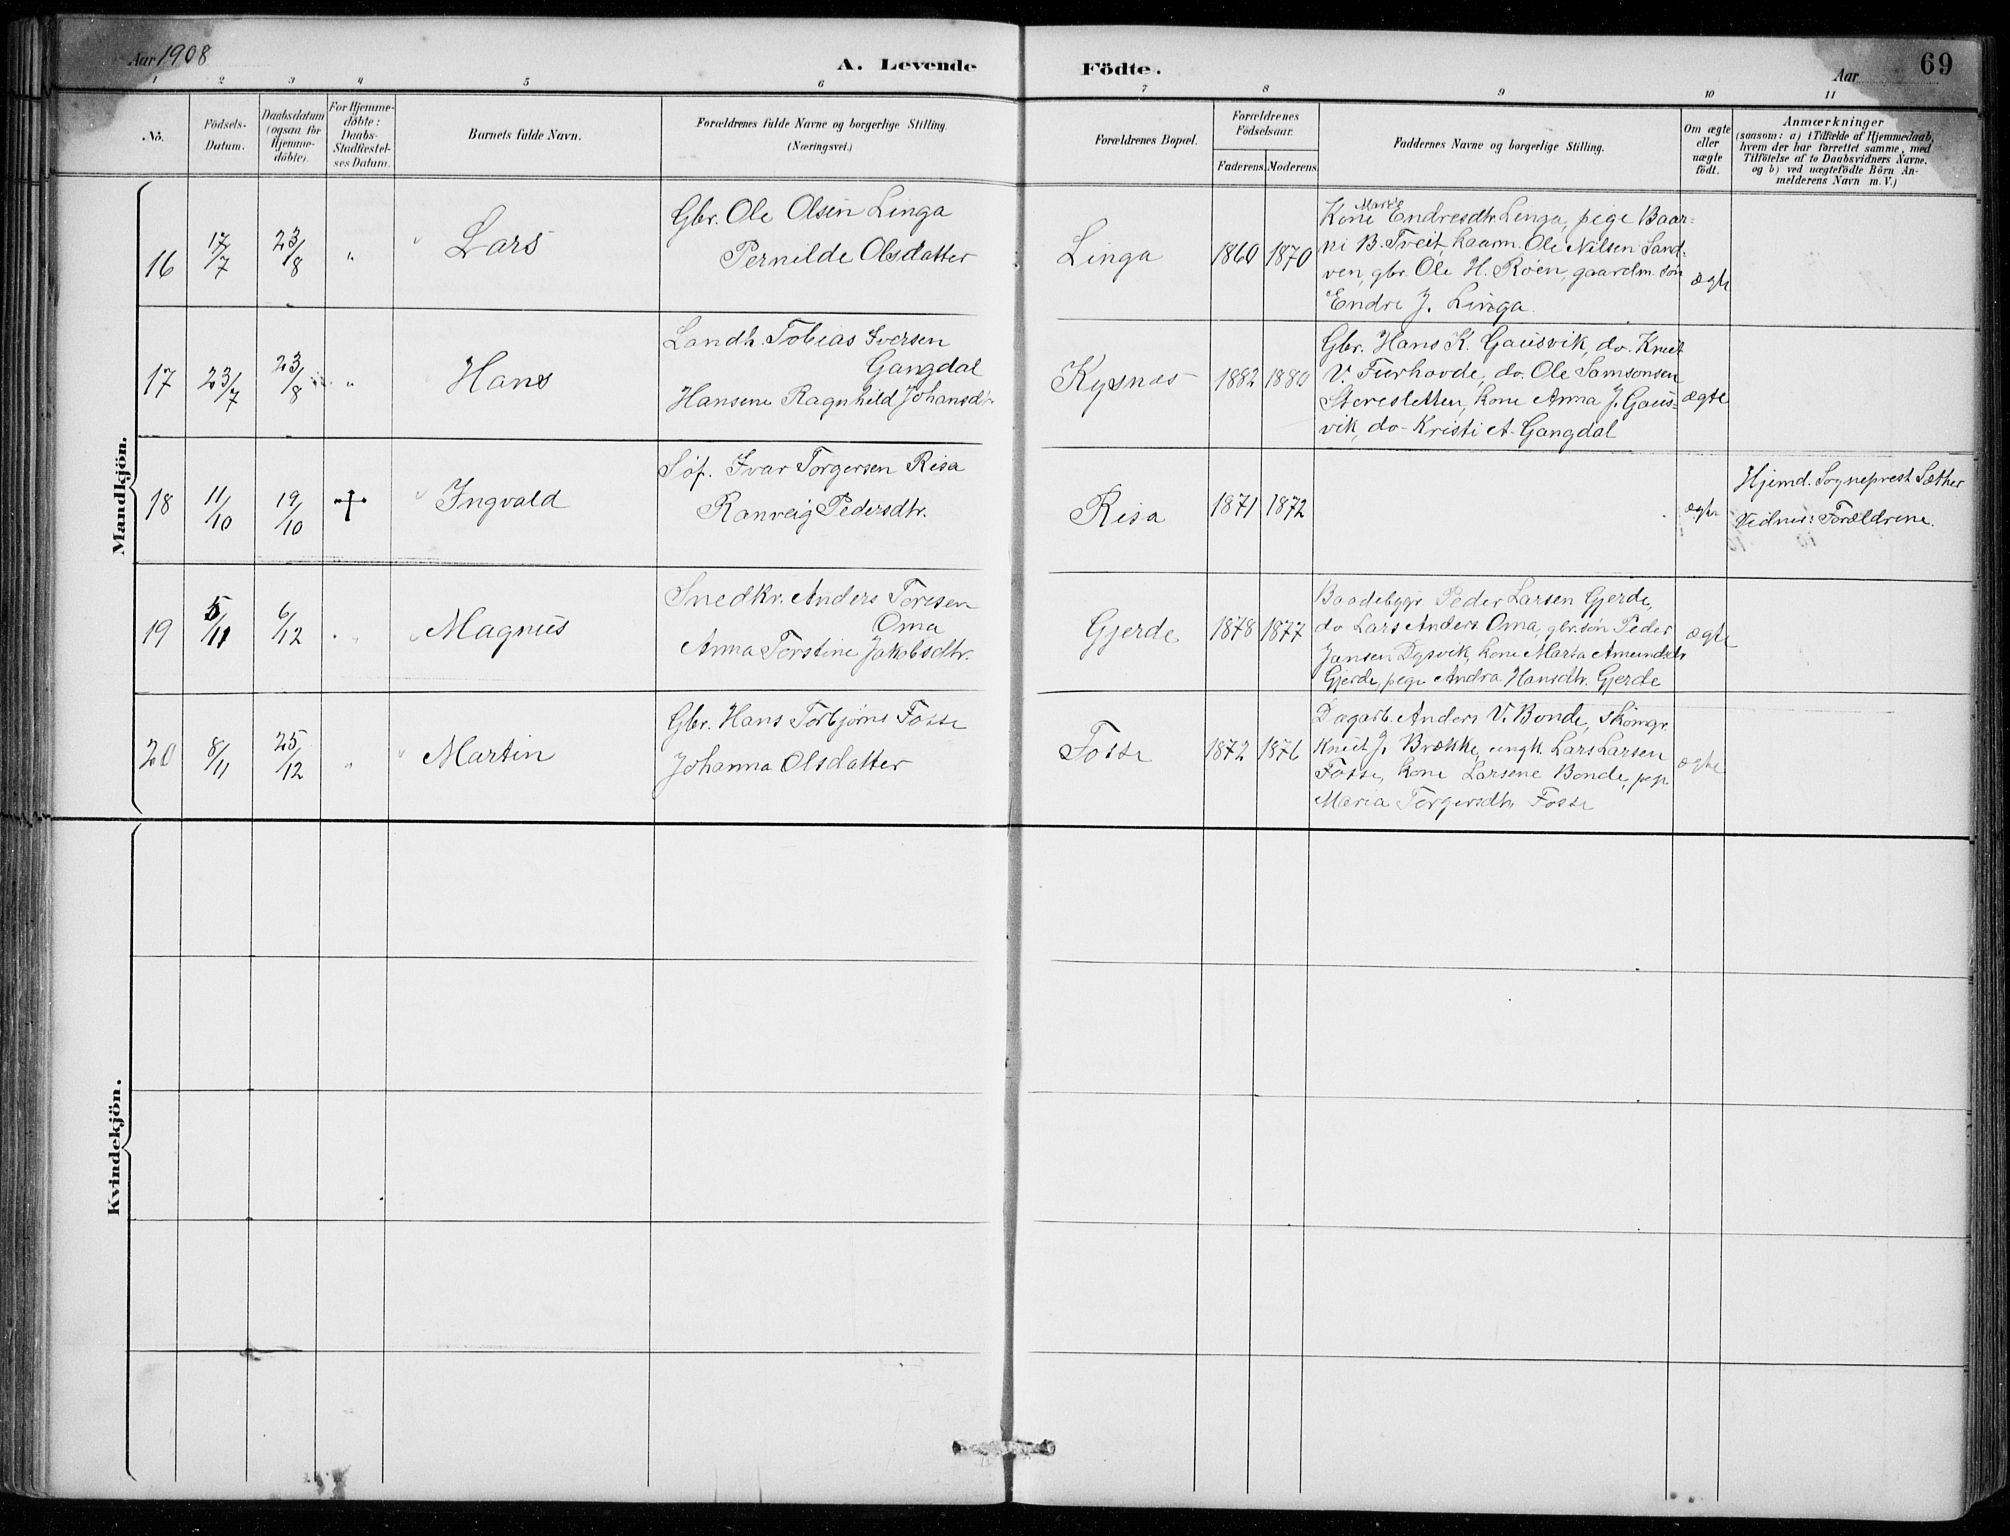 Aar 1908
A. Levende Födte.
Aar
69
1 2 3 4 5 6 7 8 9 10 11
No.
Födsels-
Datum.
Daabsdatum
(ogsaa for
Hjemme-
döbte).
For Hjemme-
döbte:
Daabs-
Stadfæstel-
ses Datum.
Barnets fulde Navn.
Forældrenes fulde Navne og borgerlige Stilling.
(Næringsvei.)
Forældrenes Bopæl.
Forældrenes
Födselsaar.
Faderens. Moderens.
Faddernes Navne og borgerlige Stilling.
Om ægte
eller
uægte
födt.
Anmærkninger
(saasom: a) i Tilfælde af Hjemmedaab,
hvem der har forrettet samme, med
Tilföielse af to Daabsvidners Navne.
og b) ved uægtefödte Börn An-
melderens Navn m. V.)
Mandkjön.
16
17/7
23/8
"
Lars
Gbr. Ole Olsen Linga
Pernilde Olsdatter
Linga
1860
1870
Kone Endresdtr. Linga, pige Baar-
ni B. Treit, kaarm. Ole Nilsen Sand-
ven, gbr. Ole H. Röen, gaardm. søn
Endre J. Linga.
ægte
17
23/7
23/8
"
Hans
Landh. Tobias Iversen
Gangdal
Hansene Ragnhild Johansdtr.
Kysnes
1882
1880
Gbr. Hans K. Gausvik, do. Knut
V. Furhovde, do. Ole Samsonsen
Steresletten, kone Anna J. Gaus-
vik, do- Kristi A. Gangdal
ægte
18
11/10
19/10
+
Ingvald
Söf. Ivar Torgersen Risa
Ranveig Pedersdtr.
Risa
1871
1872
ægte
Hjemd. Sogneprest Sæther
Vidner: Forældrene.
19
5/11
6/12
"
Magnus
Snedkr. Anders Toresen
Oma
Anna Torstine Jakobsdtr.
Gjerde
1878
1877
Baadebygr. Peder Larsen Gjerde,
do Lars Anders. Oma, gbr.søn Peder
Jansen Dysvik, kone Marta Amundsdtr
Gjerde, pige Andra Hansdtr. Gjerde
ægte
20
8/11
25/12
"
Martin
Gbr. Hans Torbjørns Fosse
Johanna Olsdatter
Fosse
1872
1876
Dagarb. Anders V. Bonde, skomgr.
Knut J. Brække, ungk Lars Larsen
Fosse, kone Larsene Bonde, pige
Maria Torgersdtr Fosse
ægte
Kvindekjön.